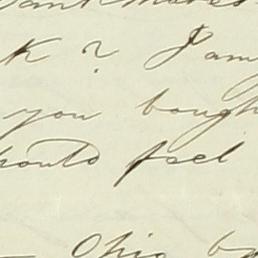 K ? I am
you bough
hould feel
Ohio by